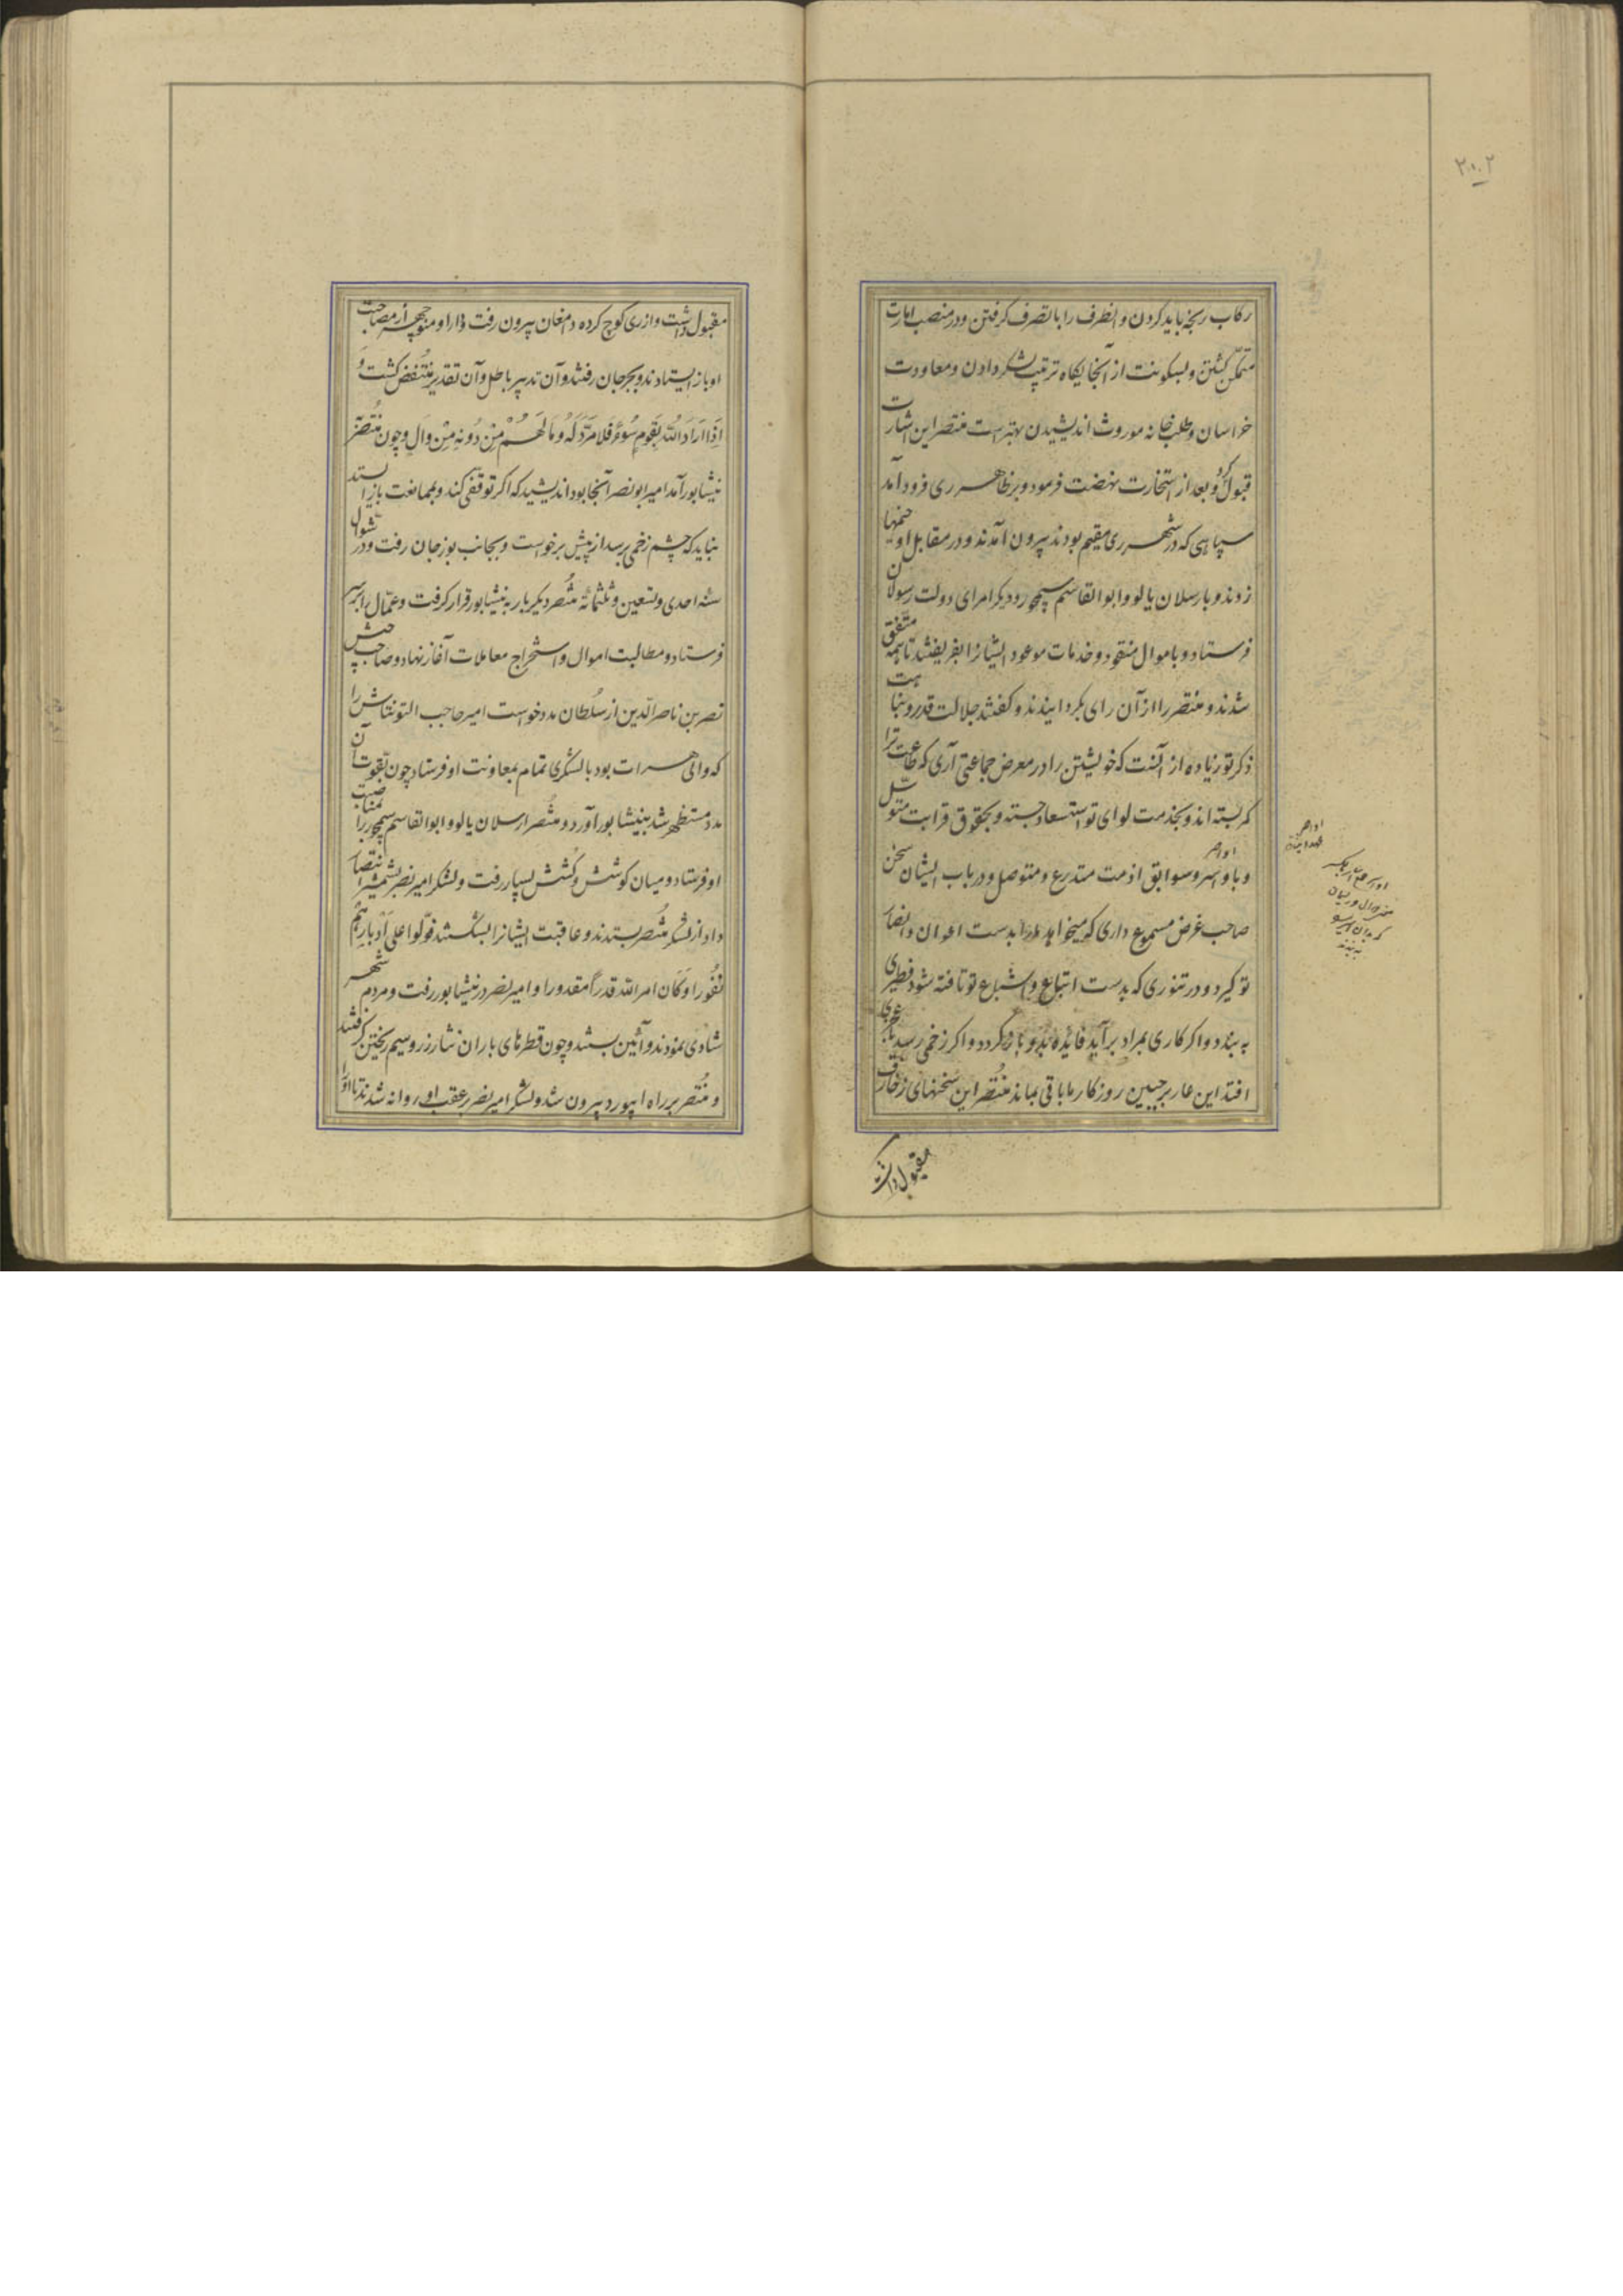 ۲۰۲
رکاب رنجه باید کردن و انطرف را با تصرف گرفتن و در منصب امارت
متمکّن گشتن و بسکونت از آنجایگاه ترتیب لشکر دادن و معاودت
خراسان و طلب خانه موروث اندیشیدن بهتر است منتصر این اشارت
قبول کرد و بعد از استخارت نهضت فرمود و بر ظاهر ری فرود آمد
سپاهی که در شهر ری مقیم بودند بیرون آمدند و در مقابل او خیمها
زدند و بارسلان یالو و ابو القاسم سیمجور و دیگر امرای دولت رسولان
فرستاد و باموال منقود و خدمات موعود ایشانرا بفریفتند تا همه متّفق
شدند و منتصر را از آن رای بگردانیدند و گفتند جلالت قدر و نباهت
ذکر تو زیاده از آنست که خویشتن را در معرض جماعتی آری که طاعت ترا
کمر بسته اند و بخدمت لوای تو استسعاد جسته و بحقوق قرابت متوسّل
اواصر
و باواصر و سوابق اذمت متدرع و متوصل و در باب ایشان سخن
صاحب غرض مسموع داری که میخواهد مار بدست اعوان و انصار
تو گیرد و در تنوری که بدست اتباع و اشیاع تو تافته شود فطیری
به بندد و اگر کاری بمراد برآید فائده بدو باز گردد و اگر زخمی رسد
افتد این عار بر جبین روزگار ما باقی بماند منتصر این سخنهای زخارف
مقبول داشت
مقبول داشت و از ری کوچ کرده دامغان بیرون رفت دارا و منوچهر از مصاحبت
او باز ایستادند و بجرجان رفتند و آن تدبیر باطل و آن تقدیر منتقض گشت و
اِذَا اَرَادَ اللّٰهُ بِقَومٍ سُوءً فَلَا مَرَدَّ لَهُ وَمَا لَهُمْ مِنْ دُونِهِ مِنْ وَالٍ و چون منتصر
نیشابور آمد امیر ابو نصر آنجا بود اندیشید که اگر توقفی کند و بممانعت باز ایستد
نباید که چشم زخمی رسد از پیش برخواست و بجانب بوزجان رفت و در شوال
سنه احدی و تسعین و ثلثمائه منتصر دیگر بار به نیشابور قرار گرفت و عمّال را بر سر
فرستاد و مطالبت اموال و استخراج معاملات آغاز نهاد و صاحب جیش
نصر بن ناصر الدّین از سلطان مدد خواست امیر حاجب التونتاش را
که والی هرات بود با لشکری تمام بمعاونت او فرستاد چون بقوت آن
مدد مستظهر شد به نیشابور آورد و منتصر ارسلان یالو و ابو القاسم سیمجور را بمناصبت
او فرستاد و میان کوشش و کشش بسیار رفت و لشکر امیر نصر بشمشیر انتصار
داد از لشکر منتصر بستدند و عاقبت ایشانرا بشکستند فَوَلَّوا علی اَدْبَارِهِم
نُفُورا وَکَان امر اللّٰه قدراً مقدورا و امیر نصر در نیشابور رفت و مردم شهر
شادی نمودند و آئین بستند و چون قطرهای باران نثار زر و سیم ریختن گرفتند
و منتصر بر راه ابیورد بیرون شد و لشکر امیر نصر بر عقب او روانه شدند تا او را